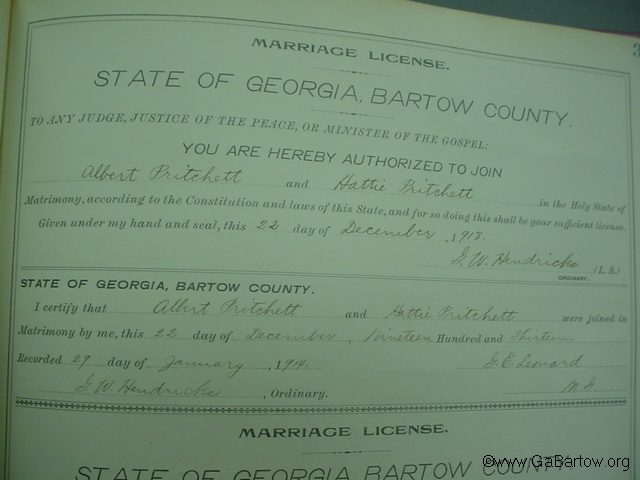 3
MARRIAGE LICENSE.
STATE OF GEORGIA, BARTOW COUNTY.
TO ANY JUDGE, JUSTICE OF THE PEACE, OR MINISTER OF THE GOSPEL:
YOU ARE HEREBY AUTHORIZED TO JOIN
Albert Pritchett and Hattie Pritchett in the Holy State of
Matrimony, according to the Constitution and laws of this State, and for so doing this shall be your sufficient license.
Given under my hand and seal, this 22 day of December, 1913.
G. W. Hendricks (L. S.)
ORDINARY.
STATE OF GEORGIA, BARTOW COUNTY.
I certify that Albert Pritchett and Hattie Pritchett were joined in
Matrimony by me, this 22 day of December, Nineteen Hundred and Thirteen.
Recorded 29 day of January, 1914. Leonard
G. W. Hendricks, Ordinary. M. G.
MARRIAGE LICENSE.
STATE OF GEORGIA, BARTOW COUNTY.
©www.GaBartow.org